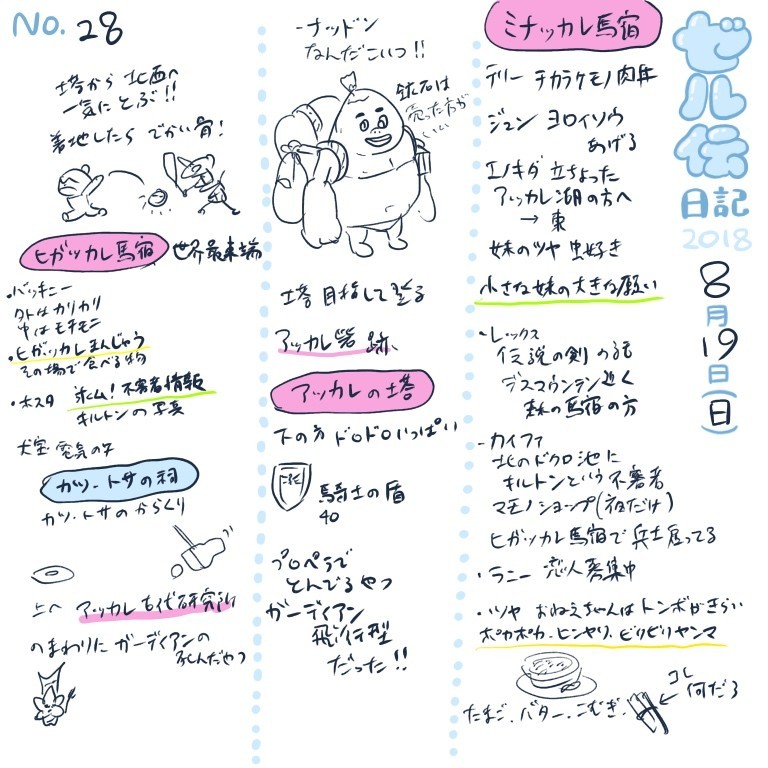 ゼル伝
日記
2018
8
月
19
日
(日)
ミナッカレ馬宿
テリー チカラケモノ肉丼
ジュン ヨロイソウ
あげる
エノキダ 立ちよった
アッカレ湖の方へ
→ 東
妹のツヤ 虫好き
小さな妹の大きな願い
・レックス
伝説の剣の話
デスマウンテン近く
森の馬宿の方
・カイファ
北のドクロ池に
キルトンという不審者
マモノショップ(夜だけ)
ヒガッカレ馬宿で兵士雇ってる
・ラニー 恋人募集中
・ツヤ おねえちゃんはトンボがきらい
ポカポカ・ヒンヤリ・ビリビリヤンマ
コレ
何だろ
たまご、バター、こむぎ、
・ナッドン
なんだこいつ!!
鉱石は
売った方が
いい
塔目指して登る
アッカレ砦跡
アッカレの塔
下の方ドロドロいっぱい
騎士の盾
40
プロペラで
とんでるやつ
ガーディアン
飛行型
だった!!
No. 28
塔から北西へ
一気にとぶ!!
着地したら でかい骨!
ヒガッカレ馬宿 世界最東端
・バッキニー
外はカリカリ
中はモチモニ
・ヒガッカレまんじゅう
その場で食べる物
・ホスタ 求ム!不審者情報
キルトンの写真
犬宝 電気の矢
カツ・トサの祠
カツ・トサのからくり
上へ アッカレ古代研究所
のまわりにガーディアンの
死んだやつ